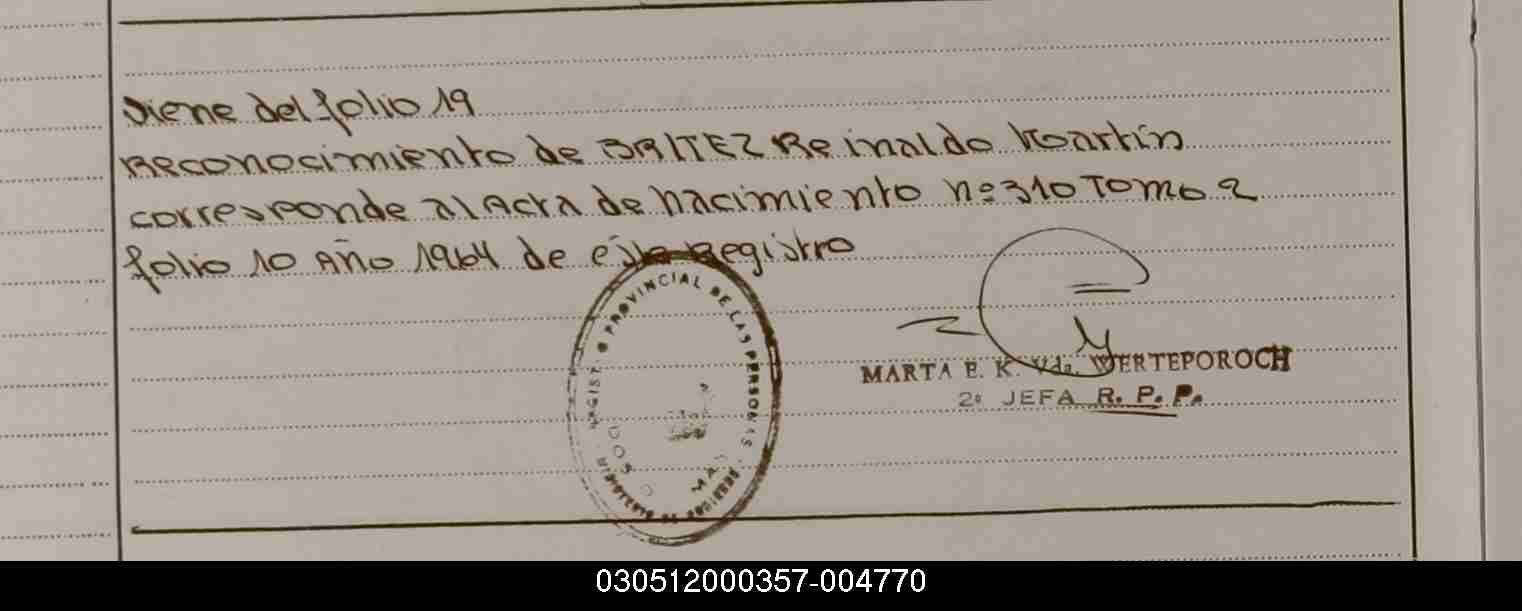 viene del folio 19
Reconocimiento de BRITEZ Reinaldo Martín
corresponde al Acta de nacimiento nº 310 Tomo 2
folio 10 Año 1964 de este Registro
PROVINCIAL DE LAS PERSONAS
MARTA E. K. Vda. WERTEPOROCH
2º JEFA R. P. P.
030512000357-004770